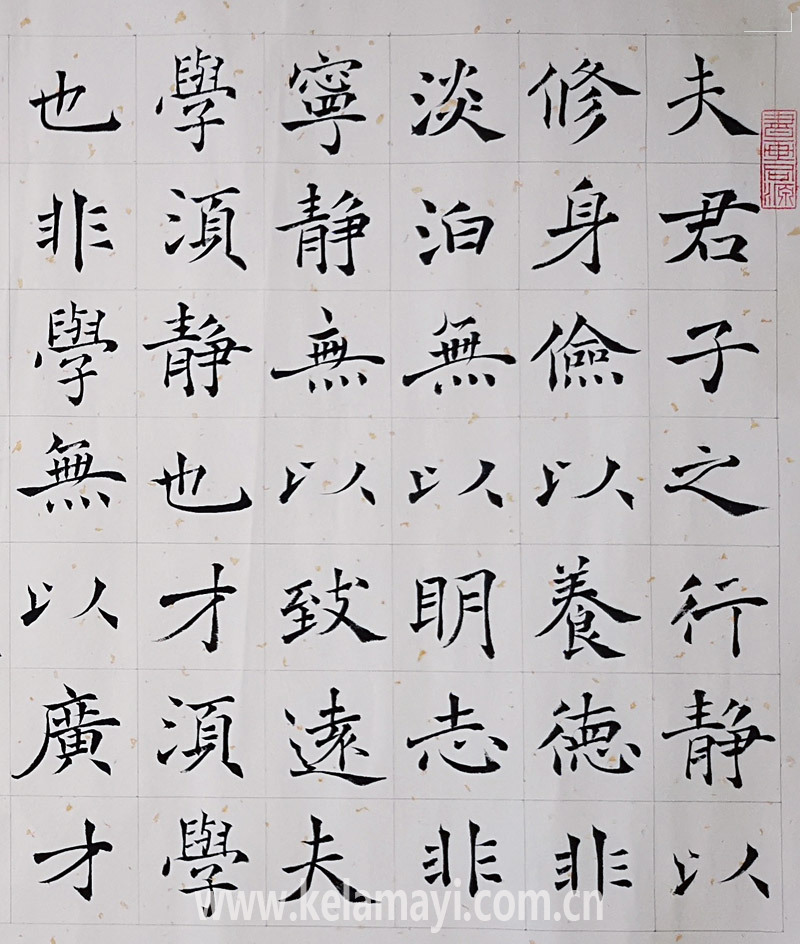 夫君子之行静以
修身儉以養德非
淡泊無以明志非
寧静無以致遠夫
學須静也才須學
也非學無以廣才
www.kelamayi.com.cn